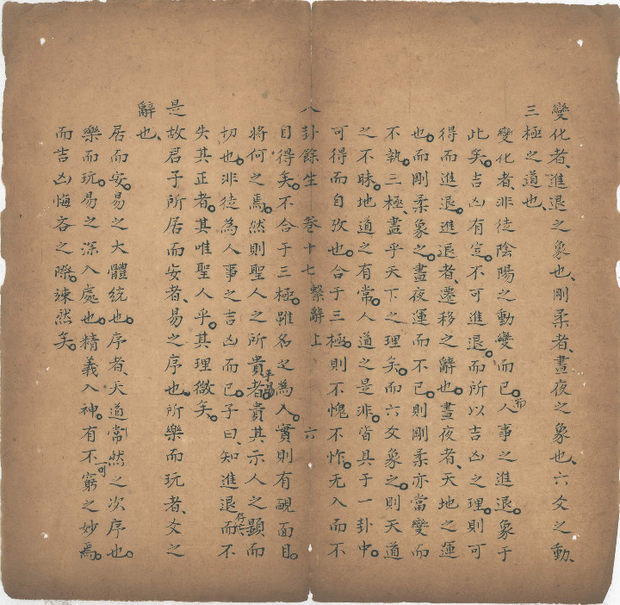 變化者、進退之象也、剛柔者、晝夜之象也、六爻之動、
三極之道也、
變化者非徒陰陽之動變而已。而人事之進退。象于
此矣。吉凶有定。不可進退。而所以吉凶之理。則可
得而進退。進退者、遷移之辭也。晝夜者、天地之運
也。而剛柔象之。晝夜運而不已。則剛柔亦當變而
不執。三極盡乎天下之理矣。而六爻象之。則天道
之不昧。地道之有常。人道之是非。皆具于一卦中。
可得而自攷也。合于三極。則不愧不怍。无入而不
八卦餘生 卷十七 繫辭上 六
自得矣。不合于三極。雖名之為人。實則有靦面目。
將何之焉。然則聖人之所貴于易者。貴其示人之顯而
切也。非徒為人事之吉凶而已。子曰、知進退存亡而不
失其正者。其唯聖人乎。其理微矣。
是故君子所居而安者、易之序也、所樂而玩者、爻之
辭也、
居而安。易之大體統也。序者、天道常然之次序也。
樂而玩。易之深入處也。精義入神。有不可窮之妙焉。
而吉凶悔吝之際。竦然矣。